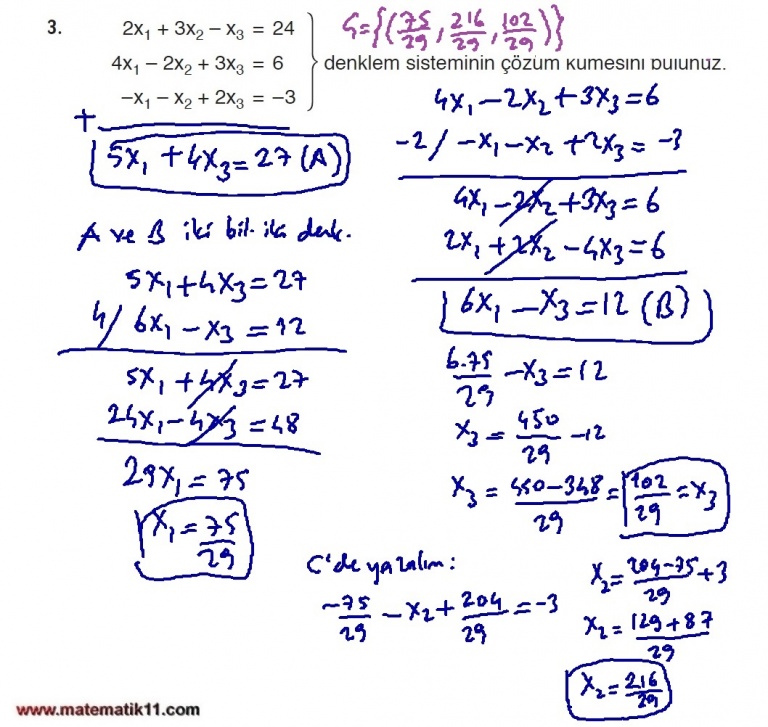 3. 2x₁ + 3x₂ – x₃ = 24
4x₁ – 2x₂ + 3x₃ = 6
–x₁ – x₂ + 2x₃ = –3
denklem sisteminin çözüm kümesini bulunuz.
Ç={(75/29, 216/29, 102/29)}
+
5x₁ + 4x₃ = 27 (A)
A ve B iki bil. iki denk.
5x₁ + 4x₃ = 27
4/ 6x₁ – x₃ = 12
5x₁ + 4x₃ = 27
24x₁ – 4x₃ = 48
29x₁ = 75
x₁ = 75/29
4x₁ – 2x₂ + 3x₃ = 6
-2/ –x₁ – x₂ + 2x₃ = –3
4x₁ – 2x₂ + 3x₃ = 6
2x₁ + 2x₂ – 4x₃ = 6
6x₁ – x₃ = 12 (B)
6.75/29 – x₃ = 12
x₃ = 450/29 – 12
x₃ = 450–348/29 = 102/29 = x₃
C'de yazalım:
–75/29 – x₂ + 204/29 = –3
x₂ = 204–75/29 + 3
x₂ = 129+87/29
x₂ = 216/29
www.matematik11.com